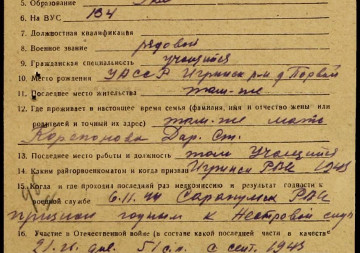 5. Образование
6. На ВУС 134
7. Должностная квалификация
8. Военное звание рядовой
9. Гражданская специальность учащийся
10. Место рождения УАССР Игринск р-н д
11. Последнее место жительства там-же
12. Где проживает в настоящее время семья (фамилия, имя и отчество жены или
родителей и точный их адрес) там-же мать
Дар. Ст.
13. Последнее место работы и должность там Учащийся
14. Каким райгорвоенкоматом и когда призван Игринск РВК 1943
15. Когда и где проходил последний раз медкомиссию и результат годности к
военной службе 6.11.44 Сарапульск РВК
признан годным к строевой служ
16. Участие в Отечественной войне (в составе какой последней части в качестве
с сент. 1943